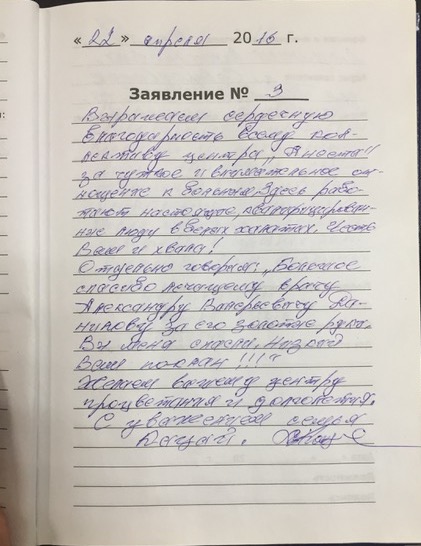 «22» апреля 2016 г.
Заявление № 9
Выражаем сердечную
благодарность всему кол-
лективу центра „
за чуткое и внимательное от-
ношение к больным. Здесь рабо-
тают настоящие, квалифицирован-
ные люди в белых халатах. Честь
Вам и хвала!
Отдельно говорим: „Большое
спасибо лечащему врачу
Александру Валерьевичу Да-
нилову за его золотые руки.
Вы меня спасли. Низкий
Вам поклон!!!"
Желаем вашему центру
процветания и долголетия.
С уважением семья